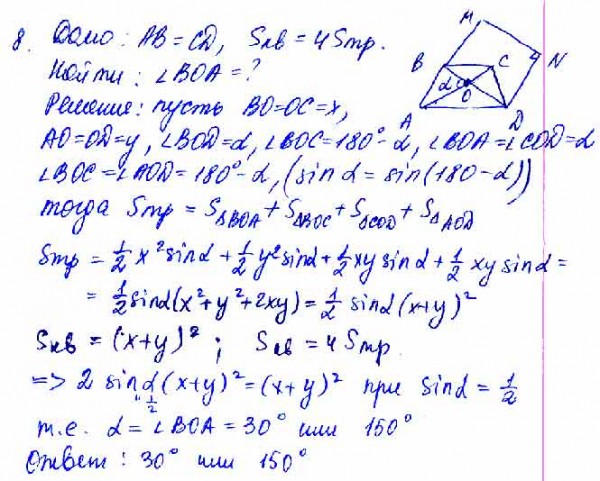 8. Дано: AB = CD, Sкв = 4 Sтр.
Найти: ∠BOA = ?
Решение: пусть BO = OC = x,
AO = OD = y, ∠BOD = α, ∠BOC = 180° - α, ∠BOA = ∠COD = α
∠BOC = ∠AOD = 180° - α, (sin α = sin(180 - α))
тогда Sтр = S△BOA + S△BOC + S△COD + S△AOD
Sтр = 1/2 x² sinα + 1/2 y² sinα + 1/2 xy sinα + 1/2 xy sinα =
= 1/2 sinα (x² + y² + 2xy) = 1/2 sinα (x+y)²
Sкв = (x+y)² ; Sкв = 4 Sтр.
=> 2 sinα (x+y)² = (x+y)² при sinα = 1/2
" 1/2
т.е. α = ∠BOA = 30° или 150°
Ответ: 30° или 150°
M
B C N
α
O
A D